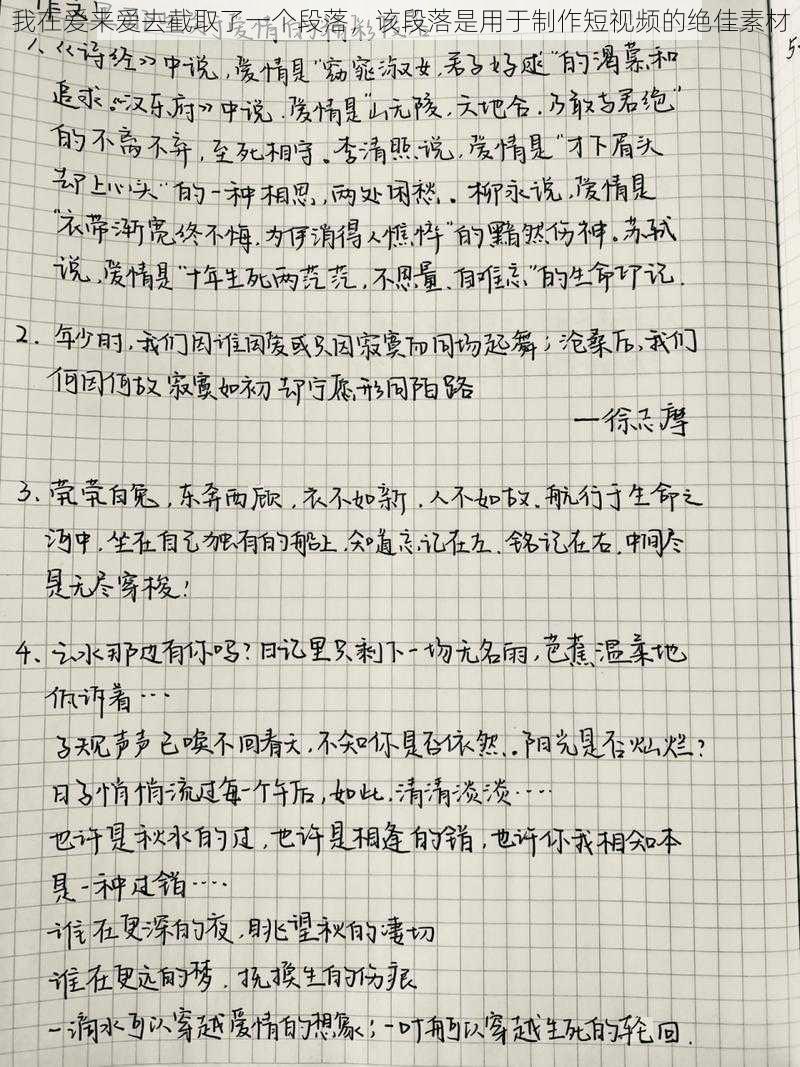 我在爱来爱去截取了一个段落，该段落是用于制作短视频的绝佳素材
1、《诗经》中说，爱情是“窈窕淑女，君子好逑”的渴慕和
追求。《汉乐府》中说，爱情是“山无陵，天地合，乃敢与君绝”
的不离不弃，至死相守。李清照说，爱情是“才下眉头
却上心头”的一种相思，两处闲愁。柳永说，爱情是
“衣带渐宽终不悔，为伊消得人憔悴”的黯然伤神。苏轼
说，爱情是“十年生死两茫茫，不思量，自难忘”的生命印记。
2. 年少时，我们因谁因爱或只因寂寞而同场起舞；沧桑后，我们
何因何故寂寞如初却宁愿形同陌路
—徐志摩
3、茕茕白兔，东奔西顾，衣不如新，人不如故。航行于生命之
河中，坐在自己独有的船上，知道忘记在左，铭记在右，中间尽
是无尽穿梭！
4、云水那边有你吗？日记里只剩下一场无名雨，芭蕉温柔地
低诉着…
子规声声已唤不回春天，不知你是否依然。阳光是否灿烂？
日子悄悄流过每一个午后，如此，清清淡淡……
也许是秋水的过，也许是相逢的错，也许你我相知本
是一种过错……
谁在更深的夜，眺望秋的凄切
谁在更远的梦，抚摸生的伤痕
一滴水可以穿越爱情的想象；一叶舟可以穿越生死的轮回。